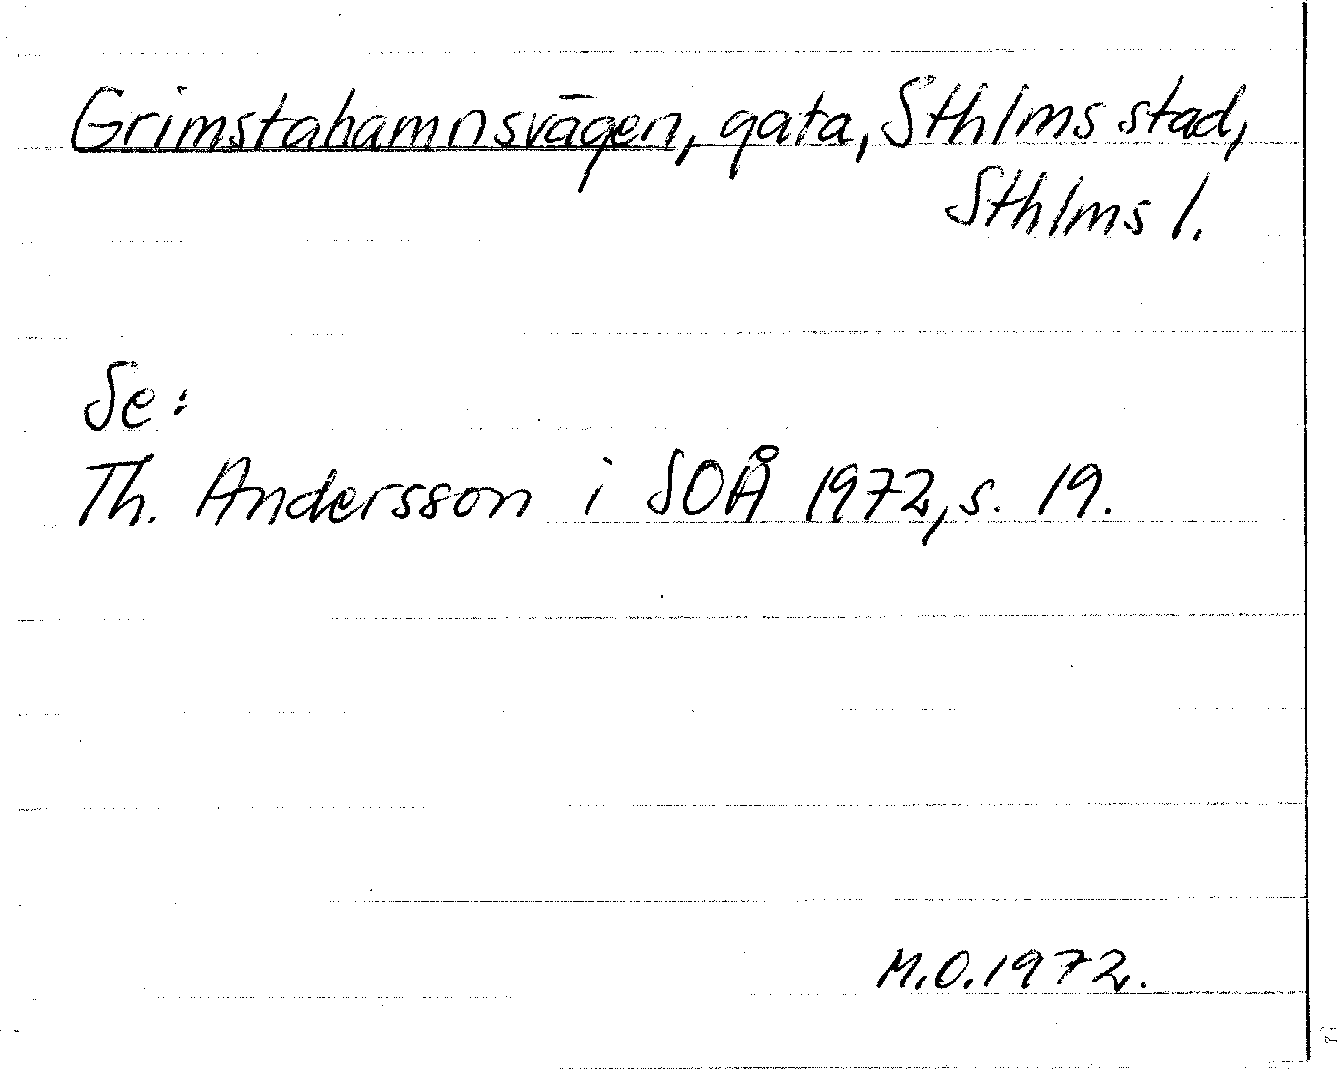 Grimstahamnsvägen, gata, Sthlms stad,
Sthlms l.
Se:
Th. Andersson i SOÅ 1972, s. 19.
M.O. 1972.